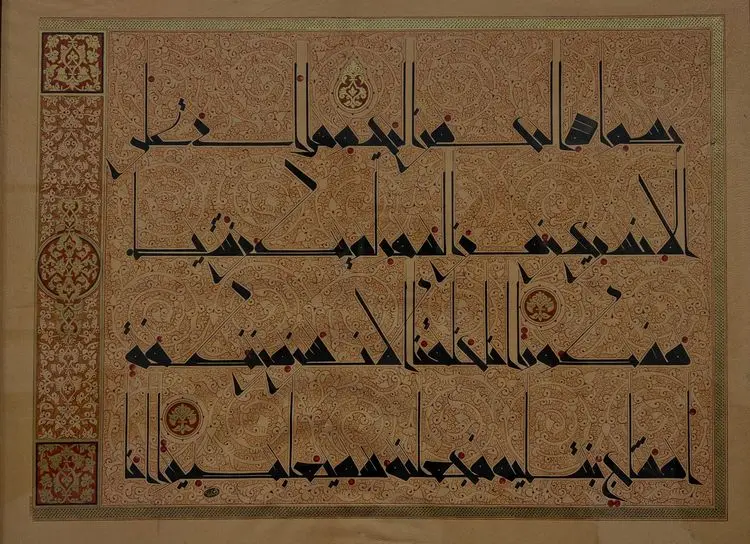 بسم الله الرحمن الرحيم هل اتى على
الانسان حين من الدهر لم يكن شيئا
مذكورا انا خلقنا الانسان من نطفة
امشاج نبتليه فجعلنه سميعا بصيرا انا